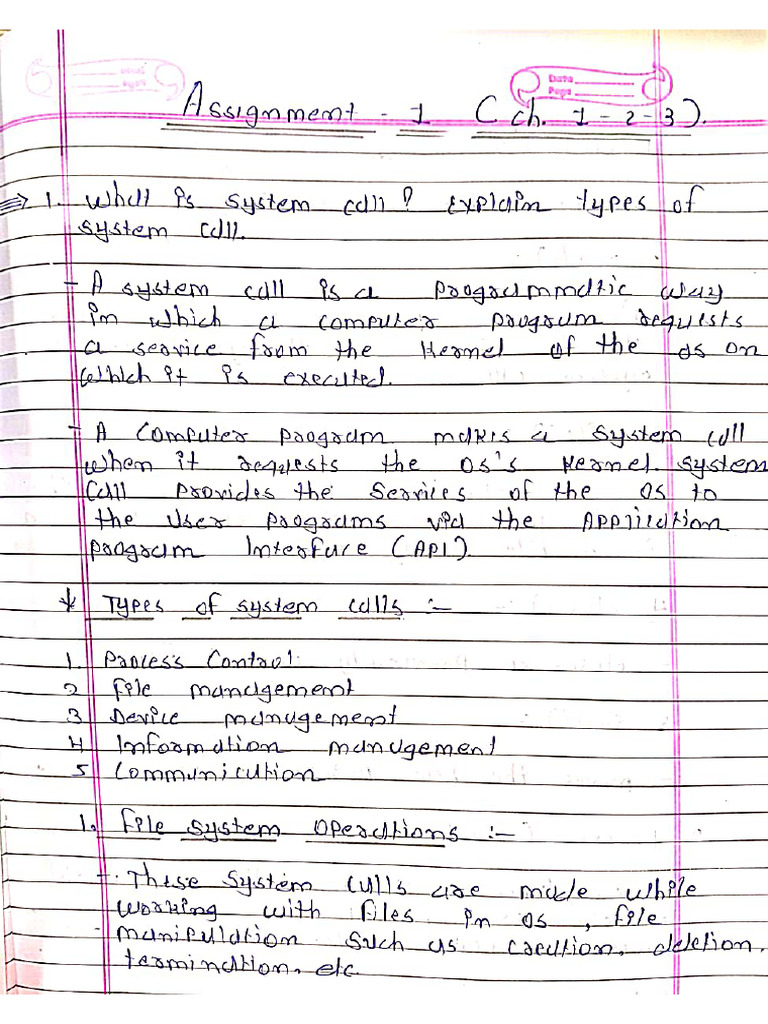 Date
Page
Assignment - 1 (ch. 1-2-3).
⇒ 1. What is system call? Explain types of
system call.
- A system call is a programmatic way
in which a computer program requests
a service from the Kernel of the os on
which it is executed.
- A computer program makes a system call
when it requests the OS's Kernel. System
call provides the services of the OS to
the user programs via the Application
program Interface (API).
* Types of system calls :-
1. Process Control.
2 File management
3 Device management
4 Information management
5 Communication
1. File system operations :-
- These system calls are made while
working with files in os, file
manipulation such as creation, deletion,
termination, etc